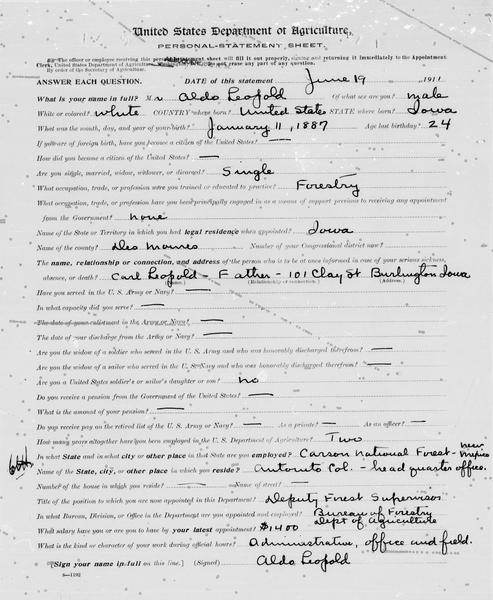 United States Department of Agriculture,
PERSONAL-STATEMENT SHEET.
The officer or employee receiving this personal-statement sheet will fill it out properly, signing and returning it immediately to the Appointment
Clerk, United States Department of Agriculture, any part of any question.
By order of the Secretary of Agriculture.
ANSWER EACH QUESTION. DATE of this statement June 19, 1911
What is your name in full? Mr Aldo Leopold Of what sex are you? male
White or colored? White COUNTRY where born? United States STATE where born? Iowa
What was the month, day, and year of your birth? January 11, 1887 Age last birthday? 24
If you are of foreign birth, have you become a citizen of the United States? —
How did you become a citizen of the United States? —
Are you single, married, widow, widower, or divorced? Single
What occupation, trade, or profession were you trained or educated to practice? Forestry
What occupation, trade, or profession have you been principally engaged in as a means of support previous to receiving any appointment
from the Government? none
Name of the State or Territory in which you had legal residence when appointed? Iowa
Name of the county? Des Moines Number of your Congressional district now?
The name, relationship or connection, and address of the person who is to be at once informed in case of your serious sickness,
absence, or death? Carl Leopold - Father - 101 Clay St Burlington Iowa
(Name.) (Relationship or connection.) (Address.)
Have you served in the U. S. Army or Navy? —
In what capacity did you serve? —
The date of your enlistment in the Army or Navy? —
The date of your discharge from the Army or Navy? —
Are you the widow of a soldier who served in the U. S. Army and who was honorably discharged therefrom? —
Are you the widow of a sailor who served in the U. S. Navy and who was honorably discharged therefrom? —
Are you a United States soldier's or sailor's daughter or son? no
Do you receive a pension from the Government of the United States? —
What is the amount of your pension? —
Do you receive pay on the retired list of the U. S. Army or Navy? — As a private? — As an officer? —
How many years altogether have you been employed in the U. S. Department of Agriculture? Two
In what State and in what city or other place in that State are you employed? Carson National Forest - New Mexico
Name of the State, city, or other place in which you reside? Antonito Col. - head quarter office.
Number of the house in which you reside? — Name of street? —
Title of the position to which you are now appointed in this Department? Deputy Forest Supervisor
In what Bureau, Division, or Office in the Department are you appointed and employed? Bureau of Forestry
Dept of Agriculture
What salary have you or are you to have by your latest appointment? $1400
What is the kind or character of your work during official hours? Administrative, office and field.
(Sign your name in full on this line.) (Signed) Aldo Leopold
8—1192